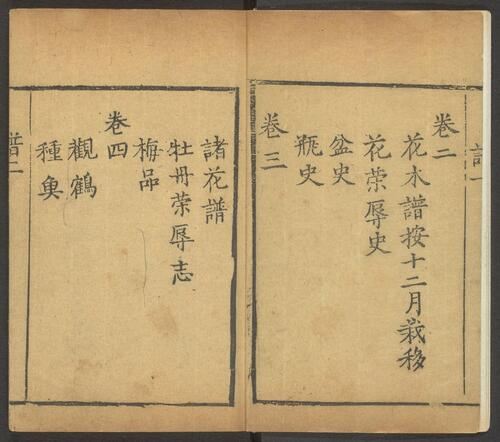 卷二
花木譜按十二月栽移
花荣辱史
盆史
瓶史
卷三
諸花譜
牡丹荣辱志
梅品
卷四
觀鶴
種魚